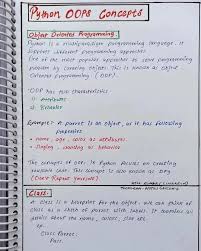 Python OOPS Concepts
Object Oriented Programming:
Python is a multiparadigm programming language. It
supports different programming approaches.
One of the most popular approaches to solve programming
problem by creating objects. This is known as Object
Oriented programming (OOP).
OOP has two characteristics
1) Attributes
2) Behavior
Example:- A parrot is an object, as it has following
properties
• name, age, color as attributes
• singing, dancing as behavior
The concepts of OOP in Python focuses on creating
reusable code. This concept is also known as
(Don't Repeat Yourself)
Class:-
A class is a blueprint for the object. we can think of
class as a sketch of parrot with labels. It contains all
details about the name, colors, size etc.
Class Parrot:
Pass.